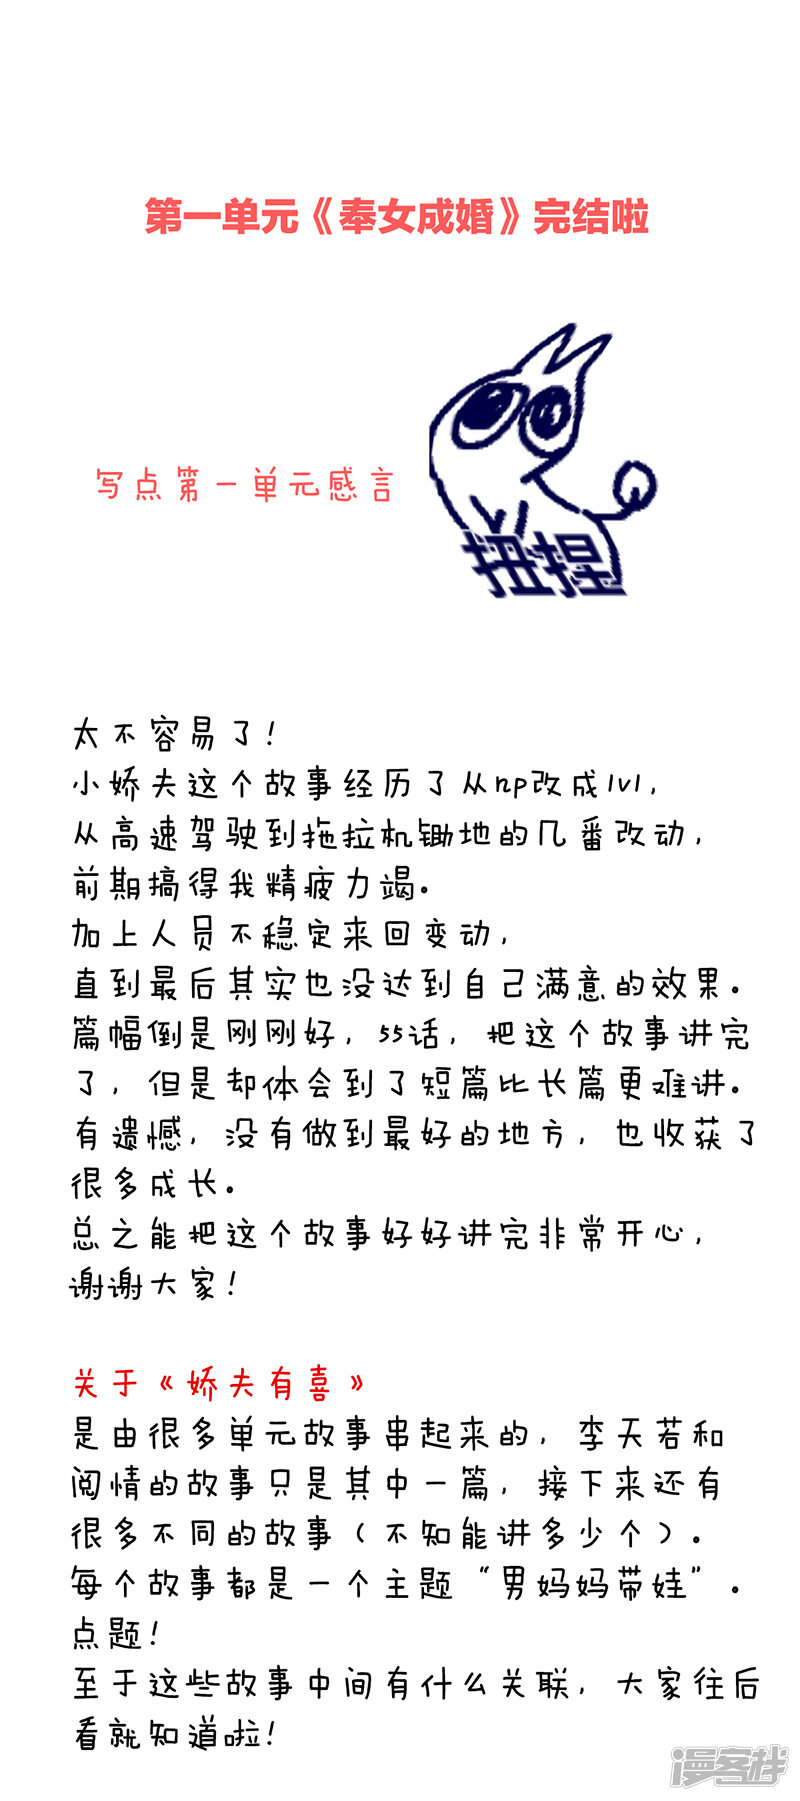 第一单元《奉女成婚》完结啦
写点第一单元感言
扭捏
太不容易了!
小娇夫这个故事经历了从np改成1v1,
从高速驾驶到拖拉机锄地的几番改动,
前期搞得我精疲力竭。
加上人员不稳定来回变动,
直到最后其实也没达到自己满意的效果。
篇幅倒是刚刚好,55话,把这个故事讲完
了,但是却体会到了短篇比长篇更难讲。
有遗憾,没有做到最好的地方,也收获了
很多成长。
总之能把这个故事好好讲完非常开心,
谢谢大家!
关于《娇夫有喜》
是由很多单元故事串起来的,李天若和
阅情的故事只是其中一篇,接下来还有
很多不同的故事(不知能讲多少个)。
每个故事都是一个主题“男妈妈带娃”。
点题!
至于这些故事中间有什么关联,大家往后
看就知道啦!
漫客栈